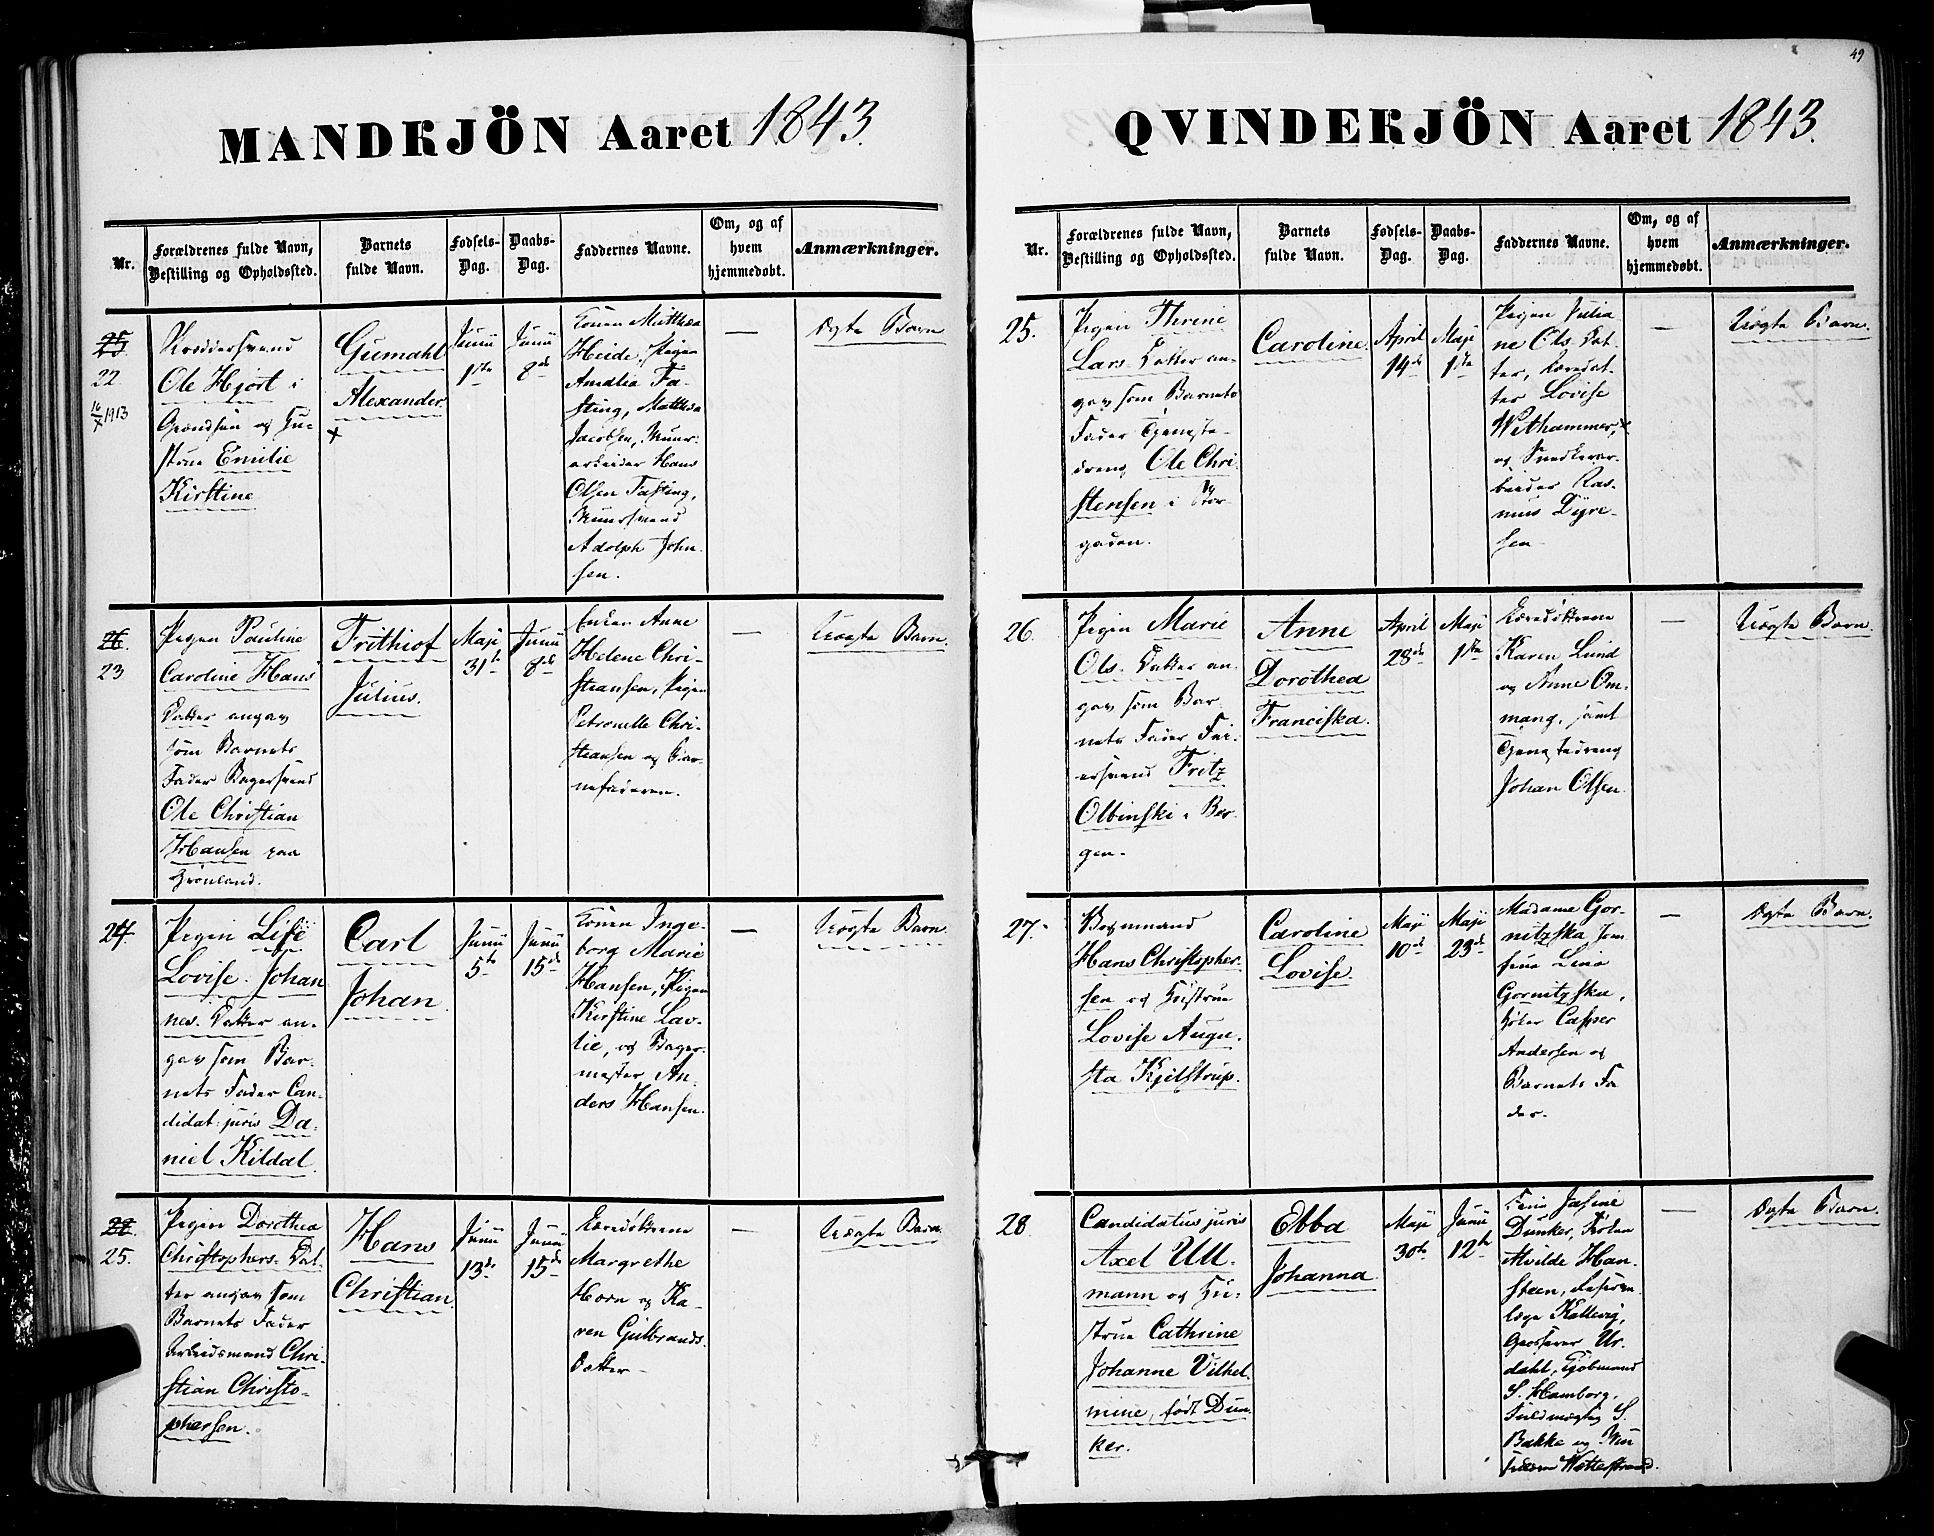 49
MANDKJÖN Aaret 1843.
Nr.
Forældrenes fulde Navn,
Bestilling og Opholdssted.
Barnets
fulde Navn.
Fødsels-
Dag.
Daabs-
Dag.
Faddernes Navne.
Om, og af
hvem
hjemmedøbt.
Anmærkninger.
25
22
16/x 1913
Ole Hjort i
Grændsen og Hu-
strue Emilie
Kirstine
Gumahl
Alexander
x
Junii
1ste
Junii
8de
Konen Matthea
Heide, Pigen
Amalia Fa-
sting, Matthea
Jacobsen, Muur-
arbeider Hans
Olsen Fasting,
Muursvend
Adolph John-
sen.
—
Ægte Barn
26
23
Pigen Pauline
Caroline Hans
Datter angav
som Barnets
Fader Bagersvend
Ole Christian
Hansen paa
Grønland.
Frithiof
Julius.
Maji
31te
Junii
8de
Enken Anne
Helene Chri-
stiansen, Pigen
Petronelle Chri-
stiansen og Bar-
nefaderen.
—
Uægte Barn.
24.
Pigen Lise
Lovise Johan
nes. Datter an-
gav som Bar-
nets Fader Can-
didat: juris Da-
niel Kildal.
Carl
Johan
Junii
5te
Junii
15de
Konen Inge-
borg Marie
Hansen, Pigen
Kirstine Lav-
lie, og Bager-
mester An-
ders Hansen.
—
Uægte Barn.
25.
Pigen Dorothea
Christophers. Dat-
ter angav som
Barnets Fader
Arbeidsmand Chri-
stian Christo-
phersen.
Hans
Christian.
Junii
13de
Junii
15de
Margrethe
Horn og Ka-
ren Gulbrands
Datter —
—
Uægte Barn.
QVINDERJÖN Aaret 1843.
Nr.
Forældrenes fulde Navn,
Bestilling og Opholdssted.
Barnets
fulde Navn.
Fødsels-
Dag.
Daabs-
Dag.
Faddernes Navne.
Om, og af
hvem
hjemmedøbt.
Anmærkninger.
25.
Pigen Thrine
Lars. Datter an-
gav som Barnets
Fader Tjeneste-
dreng Ole Chri-
stensen i Stor-
gaden.
Caroline.
April
14de
Maji
1ste
Pigen Julia
ne Ols. Dat-
ter, 
ter Lovise
Wethammer,
og Snedkerar-
beider Ras-
mus Dyre-
sen
—
Uægte Barn.
26.
Pigen Marie
Ols. Datter an-
gav som Bar-
nets Fader Far-
versvend Fritz
Olbinski i Ber-
gen.
Anne
Dorothea
Franciska.
April
28de
Maji
1ste
Karen Lund
og Anne Om-
mang, samt
Tjenestedreng
Johan Olsen.
—
Uægte Barn.
27.
Bogmand
Hans Christopher-
sen og Hustrue
Lovise Augu-
sta Kjelstrup.
Caroline
Lovise.
Maji
10de
Maji
23de
Madame Gor-
nitzska, Jom
frue Lina
Gornitzska,
Høker Casper
Andersen og
Barnets Fa-
der.
—
Ægte Barn.
28
Candidatus juris
Axel Ull-
mann og Hu-
strue Cathrine
Johanne Vilhel-
mine, født Dun-
ker.
Ebba
Johanna.
Maji
30te
Junii
12te
Dunker, Frøken
Alvilde Han-
steen, 
Kallevig,
Grosserer Ur-
dahl, Kjøbmand
S. Hamborg,
Fuldmægtig S.
Bakke og
Wetterstrand.
—
Ægte Barn.